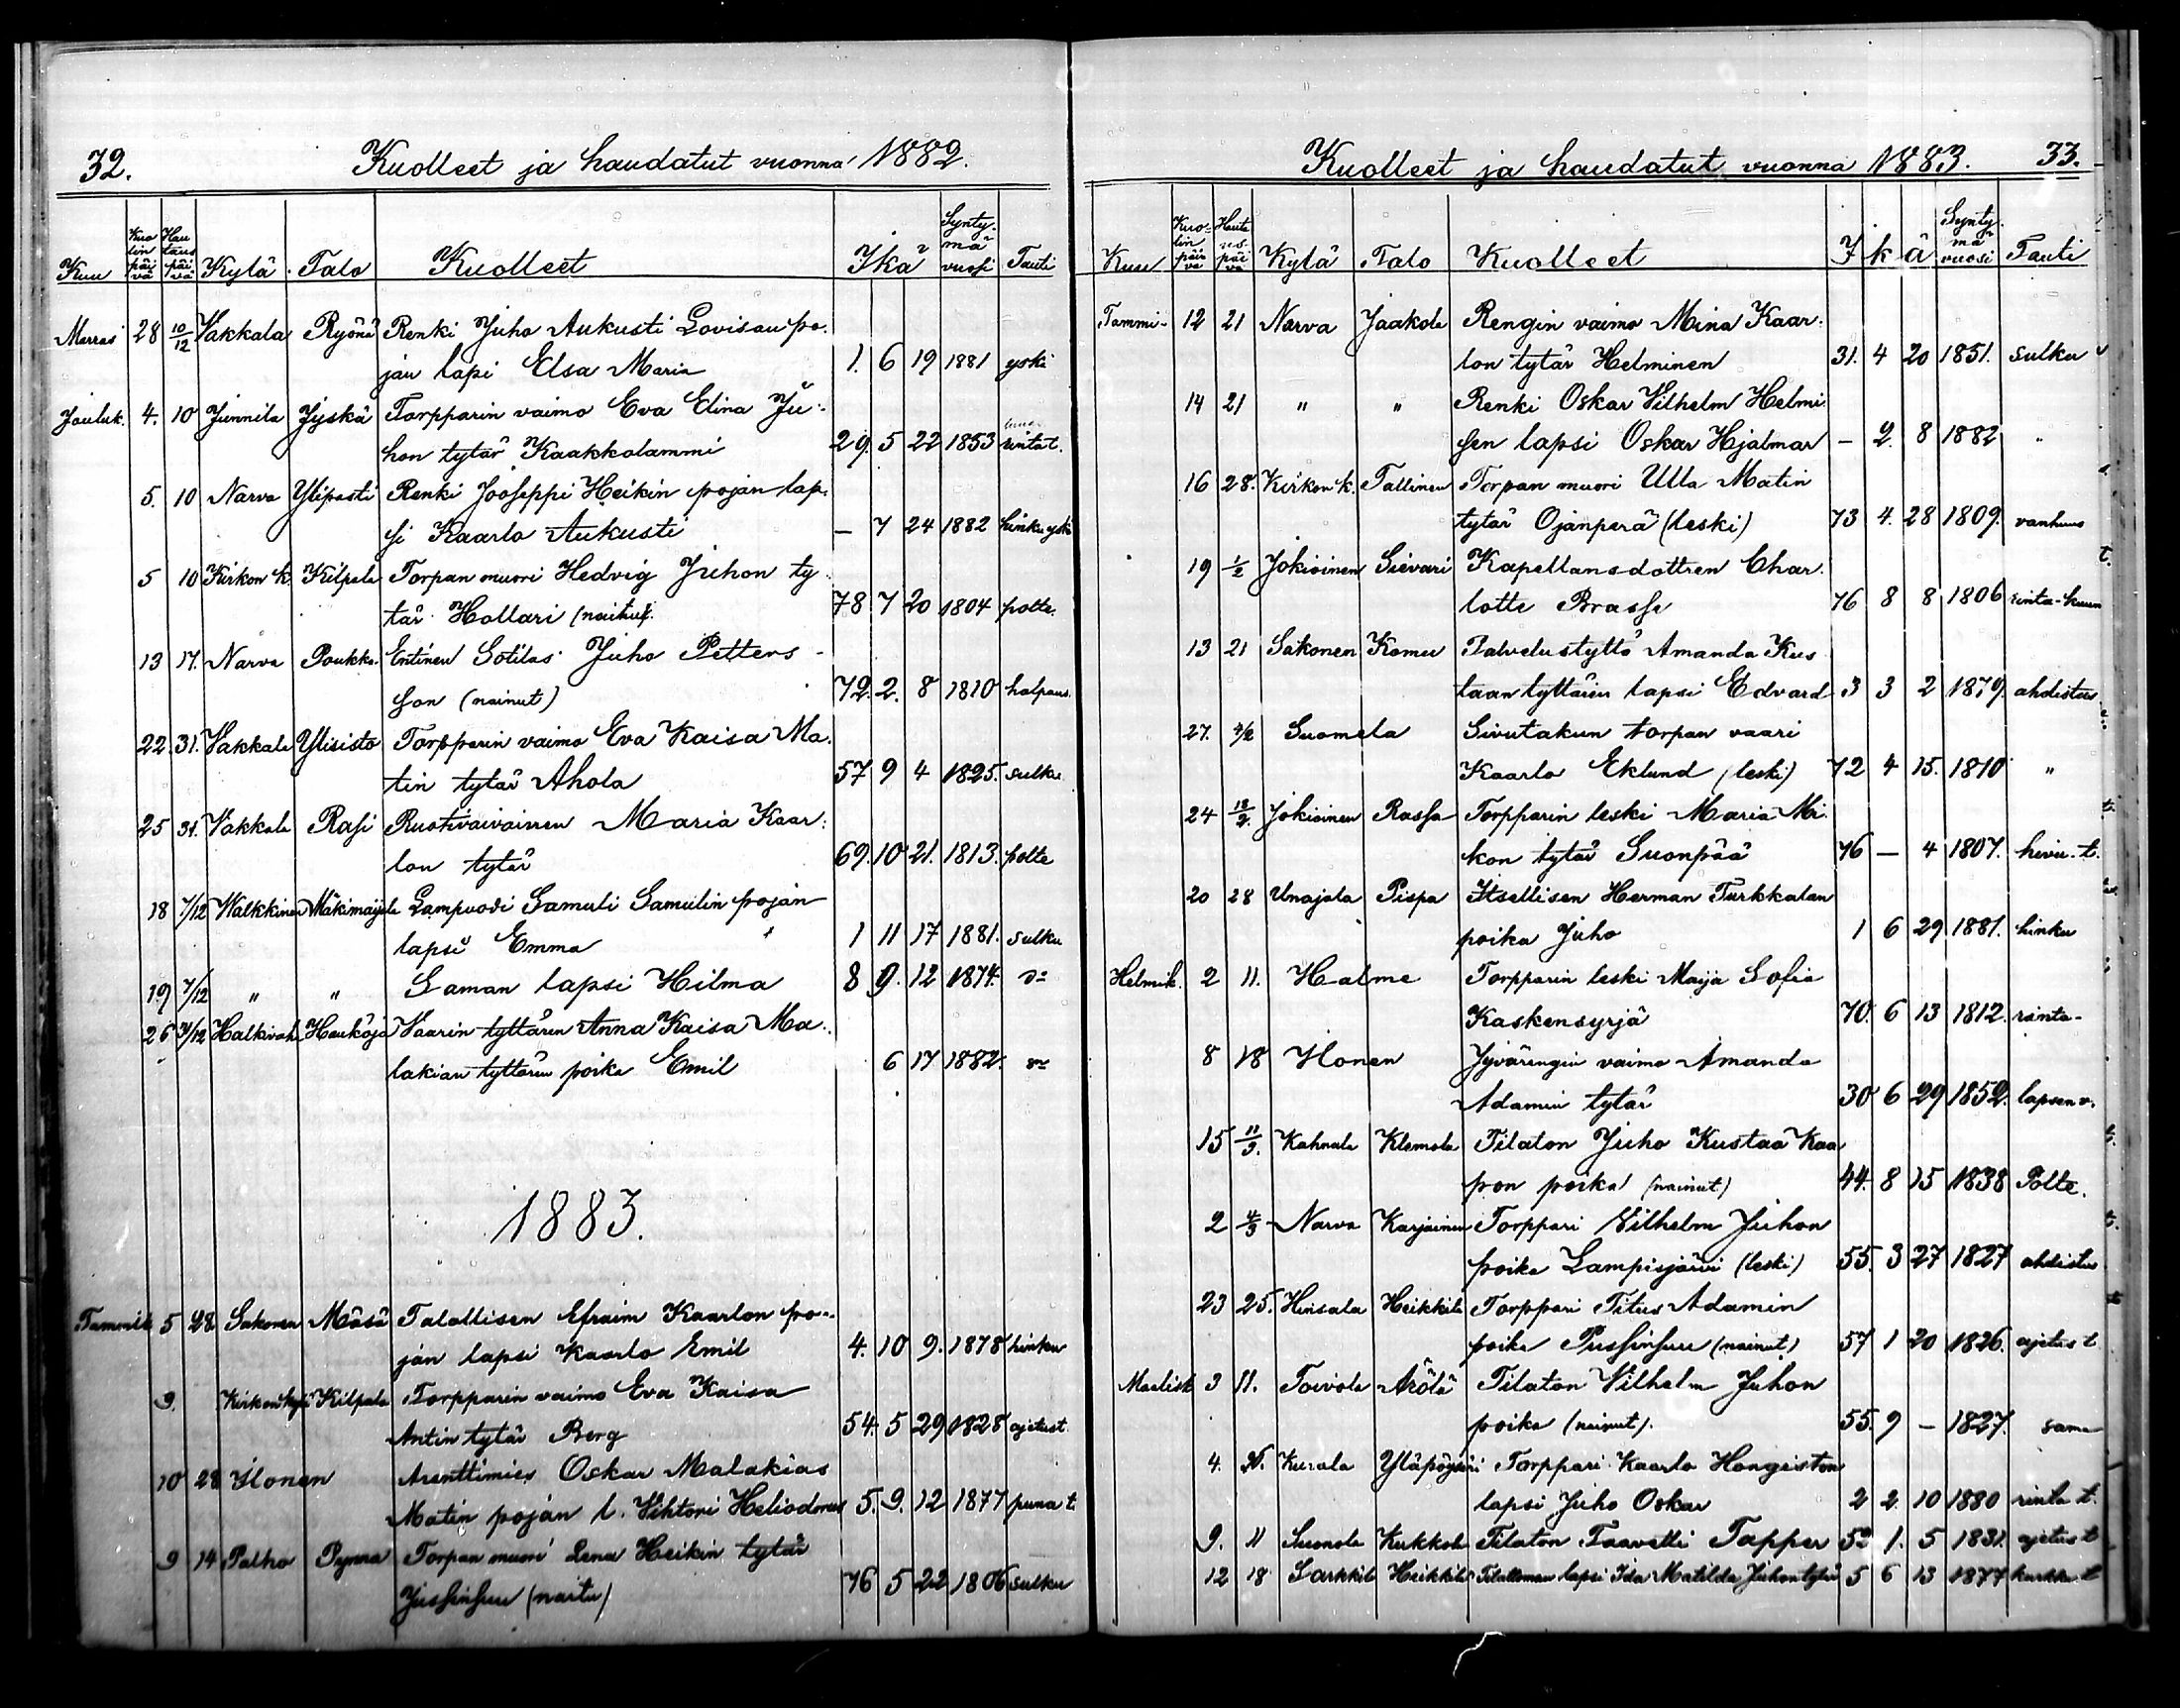 32. Kuolleet ja haudatut vuonna 1882.
Kuu Kuolinpäivä Hautauspäivä Kylä Talo Kuolleet Ikä Syntymävuosi Tauti
Marras 28 10/12 Vakkala Ryönä Renki Juho Aukusti Lovisan po-
jan lapsi Elsa Maria 1. 6 19 1881 yskä
Jouluk. 4. 10 Junnila Jyskä Torpparin vaimo Eva Elina Ju-
hon tytär Kaakkolammi 29. 5 22 1853 rintat.
5. 10 Narva Ylipasti Renki Jooseppi Heikin pojan lap-
si Kaarlo Aukusti — 7 24 1882 hinku yskä
5 10 Kirkon k. Kilpala Torpan muori Hedvig Juhon ty-
tär Hollari (naitu). 78 7 20 1804 polte.
13 17. Narva Poukka Entinen Sotilas Juho Petters-
son (nainut) 72. 2. 8 1810 halpaus.
22. 31. Vakkala Ylisisto Torpparin vaimo Eva Kaisa Ma-
tin tytär Ahola 57 9 4 1825. sulku
25 31. Vakkala Rasi Ruotivaivainen Maria Kaar-
lon tytär 69. 10 21. 1813. polte
18 7/12 Walkkinen Mäkimaijala Lampvodi Samuli Samulin pojan
lapsi Emma 1 11 17 1881. sulku
19 7/12 " " Saman lapsi Hilma 8 9. 12 1874. d:o
26 31/12 Halkivaha Haukoja Vaarin tyttären Anna Kaisa Ma-
lakian tyttären poika Emil 6 17 1882.
1883.
Tammik 5 28 Sakonen Mäsä Talollisen Efraim Kaarlon po-
jan lapsi Kaarlo Emil 4. 10 9. 1878 hinku
9. Kirkonkylä Kilpala Torpparin vaimo Eva Kaisa
Antin tytär Berg 54. 5 29 1828 ajetust.
10 28 Ilonen Arenttimies Oskar Malakias
Matin pojan l. Vihtori Heliodorus 5. 9. 12 1877 puna t.
9 14 Palho Torpan muori Lena Heikin tytär
Jussinsuu (naitu) 76 5 22 1806 sulku
Kuolleet ja haudatut vuonna 1883. 33.
Kuu Kuolinpäivä Hautauspäivä Kylä Talo Kuolleet Ikä Syntymävuosi Tauti
Tammi- 12 21 Narva Jaakola Rengin vaimo Mina Kaar-
lon tytär Helminen 31. 4 20 1851. sulku
14 21 " " Renki Oskar Vilhelm Helmi-
sen lapsi Oskar Hjalmar — 2. 8 1882 "
16 28. Kirkon k. Tallinen Torpan muori Ulla Matin
tytär Ojanperä (leski) 73 4. 28 1809. vanhuus
19 1/2 Jokioinen Sievari Kapellansdottren Char-
lotte Brasse 76 8 8 1806 rinta-kuum
13 21 Sakonen Komu Palvelustyttö Amanda Kus-
taan tyttären lapsi Edvard 3 3 2 1879. ahdistus
27. 4/2 Suomela Sivutakun torpan vaari
Kaarlo Eklund (leski) 72 4 15. 1810 "
24 18/2. Jokioinen Rassa Torpparin leski Maria Mi-
kon tytär Suonpää 76 — 4 1807. hivu-t.
20 28 Unajala Pispa Itsellisen Herman Turkkalan
poika Juho 1 6 29 1881. hinku
Helmik. 2 11. Halme Torpparin leski Maija Sofia
Kaskensyrjä 70. 6 13 1812. rinta-
8 18 Ilonen Jyvärengin vaimo Amanda
Adamin tytär 30 6 29 1852. lapsen v.
15 11/3. Kahnala Klemola Tilaton Juho Kustaa Kaa-
pon poika (nainut) 44. 8 15 1838 Polte.
2 4/3 Narva Karjainen Torppari Vilhelm Juhon
poika Lampisjärvi (leski) 55. 3 27 1827 ahdistus
23 25. Hinsala Heikkilä Torppari Titus Adamin
poika Pussinsuu (nainut) 57 1 20 1826. ajetus t
Maalisk 3 11. Toivola Arölä Tilaton Vilhelm Juhon
poika (nainut). 55. 9 — 1827. sama
4. Kurala Yläpöysäri Torppari Kaarlo Hongiston
lapsi Juho Oskar 2 2. 10 1880 rinta t.
9. 11 Suonola Kukkola Tilaton Taavetti Tapper 52 1. 5 1831. ajetus t
12 18 Sarkkila Heikkilä lapsi Ida Matilda Juhon tytär 5 6 13 1877 kurkku t